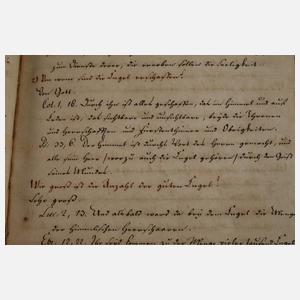 zum Dienste derer, die ererben sollen die Seeligkeit.
2) Von wem sind die Engel erschaffen?
Von Gott.
Col. 1, 16. Durch ihn ist alles geschaffen, das im Himmel und auf
Erden ist, das sichtbare und unsichtbare, beyde die Thronen
und Herrschaften und Fürstenthümer und Obrigkeiten.
Ps. 33, 6. Der Himmel ist durchs Wort des Herrn gemacht, und
alle sein Heer /: wozu auch die Engel gehören :/ durch den Geist
seines Mundes.
Wie groß ist die Anzahl der guten Engel?
Sehr groß.
Luc. 2, 13. Und alsbald ward da bey dem Engel die Menge
der Himmlischen Heerschaaren.
Ebr. 12, 22. Ihr seyd kommen zu der Menge vieler tausend Engel